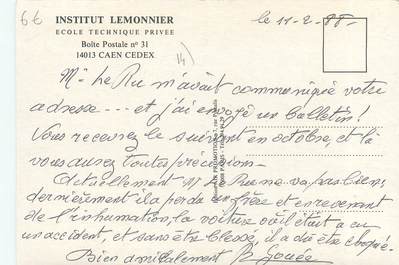 6€
INSTITUT LEMONNIER
ECOLE TECHNIQUE PRIVEE
Boîte Postale n° 31
14013 CAEN CEDEX
14)
le 11-2-88-
Mr Le Ru m'avait communiqué votre
adresse --- et j'ai envoyé un bulletin!
Vous recevrez le suivant en octobre, et là
vous aurez toutes précisions -
Actuellement Mr Le Ru ne va pas bien,
dernièrement il a perdu un frère et en revenant
de l'inhumation, la voiture où il était a eu
un accident, et sans être blessé, il a dû être choqué -
Bien amicalement